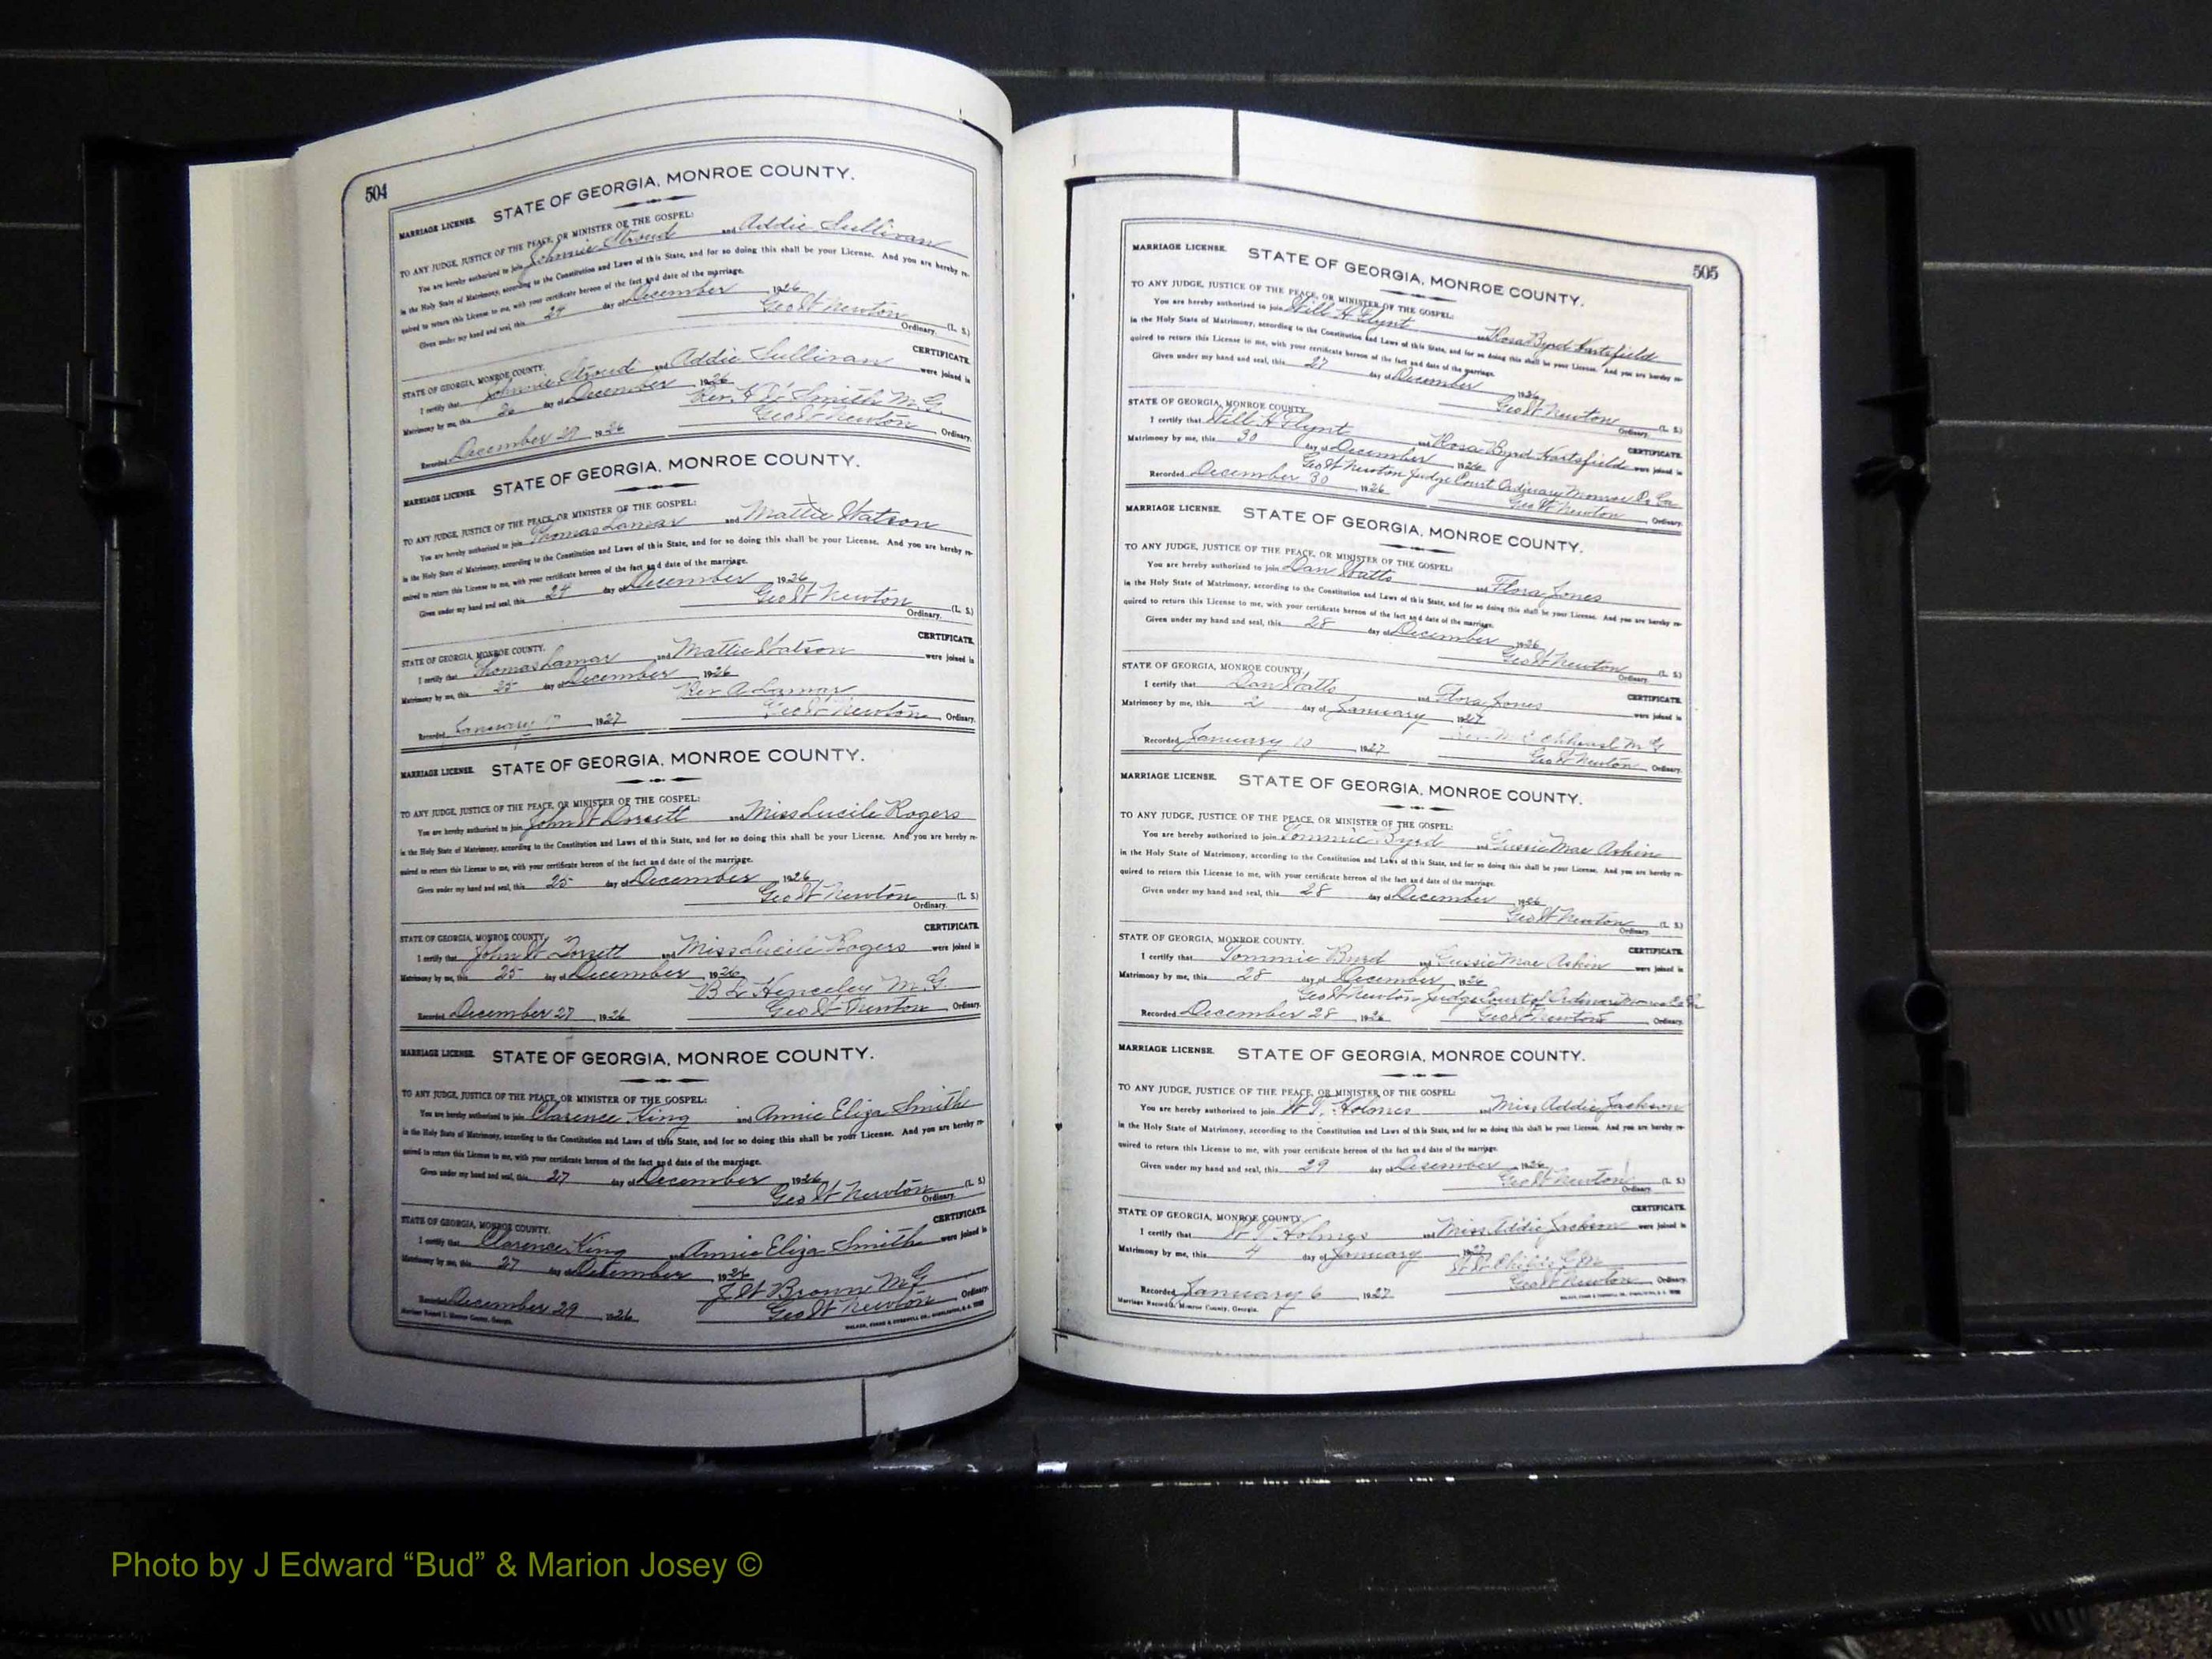 504
MARRIAGE LICENSE. STATE OF GEORGIA, MONROE COUNTY.
TO ANY JUDGE, JUSTICE OF THE PEACE, OR MINISTER OF THE GOSPEL:
You are hereby authorized to join Johnnie Stroud and Addie Sullivan
in the Holy State of Matrimony, according to the Constitution and Laws of this State, and for so doing this shall be your License. And you are hereby re-
quired to return this License to me, with your certificate hereon of the fact and date of the marriage.
Given under my hand and seal, this 24 day of December 1926
Geo W Newton (L. S.)
Ordinary.
CERTIFICATE.
STATE OF GEORGIA, MONROE COUNTY.
I certify that Johnnie Stroud and Addie Sullivan were joined in
Matrimony by me, this 26 day of December 1926
Rev. Smith M. G.
Recorded December 29 1926 Geo W Newton Ordinary.
MARRIAGE LICENSE. STATE OF GEORGIA, MONROE COUNTY.
TO ANY JUDGE, JUSTICE OF THE PEACE, OR MINISTER OF THE GOSPEL:
You are hereby authorized to join Thomas Lamar and Mattie Watson
in the Holy State of Matrimony, according to the Constitution and Laws of this State, and for so doing this shall be your License. And you are hereby re-
quired to return this License to me, with your certificate hereon of the fact and date of the marriage.
Given under my hand and seal, this 24 day of December 1926
Geo W Newton (L. S.)
Ordinary.
CERTIFICATE.
STATE OF GEORGIA, MONROE COUNTY.
I certify that Thomas Lamar and Mattie Watson were joined in
Matrimony by me, this 25 day of December 1926
Rev A Lamar
Recorded January 1927 Geo W Newton Ordinary.
MARRIAGE LICENSE. STATE OF GEORGIA, MONROE COUNTY.
TO ANY JUDGE, JUSTICE OF THE PEACE, OR MINISTER OF THE GOSPEL:
You are hereby authorized to join John W Dorsett and Miss Lucile Rogers
in the Holy State of Matrimony, according to the Constitution and Laws of this State, and for so doing this shall be your License. And you are hereby re-
quired to return this License to me, with your certificate hereon of the fact and date of the marriage.
Given under my hand and seal, this 25 day of December 1926
Geo W Newton (L. S.)
Ordinary.
CERTIFICATE.
STATE OF GEORGIA, MONROE COUNTY.
I certify that John W Dorsett and Miss Lucile Rogers were joined in
Matrimony by me, this 25 day of December 1926
B L Henceley M. G.
Recorded December 27 1926 Geo W Newton Ordinary.
MARRIAGE LICENSE. STATE OF GEORGIA, MONROE COUNTY.
TO ANY JUDGE, JUSTICE OF THE PEACE, OR MINISTER OF THE GOSPEL:
You are hereby authorized to join Clarence King and Annie Eliza Smith
in the Holy State of Matrimony, according to the Constitution and Laws of this State, and for so doing this shall be your License. And you are hereby re-
quired to return this License to me, with your certificate hereon of the fact and date of the marriage.
Given under my hand and seal, this 27 day of December 1926
Geo W Newton (L. S.)
Ordinary.
CERTIFICATE.
STATE OF GEORGIA, MONROE COUNTY.
I certify that Clarence King and Annie Eliza Smith were joined in
Matrimony by me, this 27 day of December 1926
J W Brown M G
Recorded December 29 1926 Geo W Newton Ordinary.
Marriage Record J, Monroe County, Georgia.
505
MARRIAGE LICENSE. STATE OF GEORGIA, MONROE COUNTY.
TO ANY JUDGE, JUSTICE OF THE PEACE, OR MINISTER OF THE GOSPEL:
You are hereby authorized to join Will H Flynt and Rosa Byrd Hartsfield
in the Holy State of Matrimony, according to the Constitution and Laws of this State, and for so doing this shall be your License. And you are hereby re-
quired to return this License to me, with your certificate hereon of the fact and date of the marriage.
Given under my hand and seal, this 27 day of December 1926
Geo W Newton (L. S.)
Ordinary.
STATE OF GEORGIA, MONROE COUNTY.
CERTIFICATE.
I certify that Will H Flynt and Rosa Byrd Hartsfield were joined in
Matrimony by me, this 30 day of December 1926
Geo W Newton Judge Court Ordinary Monroe Co Ga
Recorded December 30 1926 Geo W Newton Ordinary.
MARRIAGE LICENSE. STATE OF GEORGIA, MONROE COUNTY.
TO ANY JUDGE, JUSTICE OF THE PEACE, OR MINISTER OF THE GOSPEL:
You are hereby authorized to join Dan Watts and Flora Jones
in the Holy State of Matrimony, according to the Constitution and Laws of this State, and for so doing this shall be your License. And you are hereby re-
quired to return this License to me, with your certificate hereon of the fact and date of the marriage.
Given under my hand and seal, this 28 day of December 1926
Geo W Newton (L. S.)
Ordinary.
STATE OF GEORGIA, MONROE COUNTY.
CERTIFICATE.
I certify that Dan Watts and Flora Jones were joined in
Matrimony by me, this 2 day of January 1927
Rev M G
Recorded January 10 1927 Geo W Newton Ordinary.
MARRIAGE LICENSE. STATE OF GEORGIA, MONROE COUNTY.
TO ANY JUDGE, JUSTICE OF THE PEACE, OR MINISTER OF THE GOSPEL:
You are hereby authorized to join Tommie Byrd and Gussie Mae Askin
in the Holy State of Matrimony, according to the Constitution and Laws of this State, and for so doing this shall be your License. And you are hereby re-
quired to return this License to me, with your certificate hereon of the fact and date of the marriage.
Given under my hand and seal, this 28 day of December 1926
Geo W Newton (L. S.)
Ordinary.
STATE OF GEORGIA, MONROE COUNTY.
CERTIFICATE.
I certify that Tommie Byrd and Gussie Mae Askin were joined in
Matrimony by me, this 28 day of December 1926
Geo W Newton Judge Court of Ordinary Monroe Co Ga
Recorded December 28 1926 Geo W Newton Ordinary.
MARRIAGE LICENSE. STATE OF GEORGIA, MONROE COUNTY.
TO ANY JUDGE, JUSTICE OF THE PEACE, OR MINISTER OF THE GOSPEL:
You are hereby authorized to join W T. Holmes and Miss Addie Jackson
in the Holy State of Matrimony, according to the Constitution and Laws of this State, and for so doing this shall be your License. And you are hereby re-
quired to return this License to me, with your certificate hereon of the fact and date of the marriage.
Given under my hand and seal, this 29 day of December 1926
Geo W Newton (L. S.)
Ordinary.
STATE OF GEORGIA, MONROE COUNTY.
CERTIFICATE.
I certify that W T Holmes and Miss Addie Jackson were joined in
Matrimony by me, this 4 day of January 1927
Recorded January 6 1927 Geo W Newton Ordinary.
Marriage Record J, Monroe County, Georgia.
Photo by J Edward “Bud” & Marion Josey ©